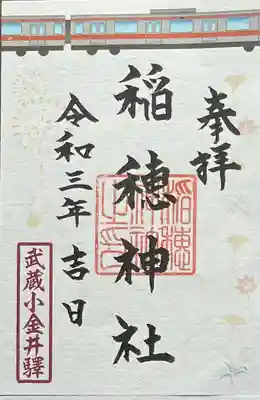 奉拝
稲穂神社
令和三年 吉日
武蔵小金井驛